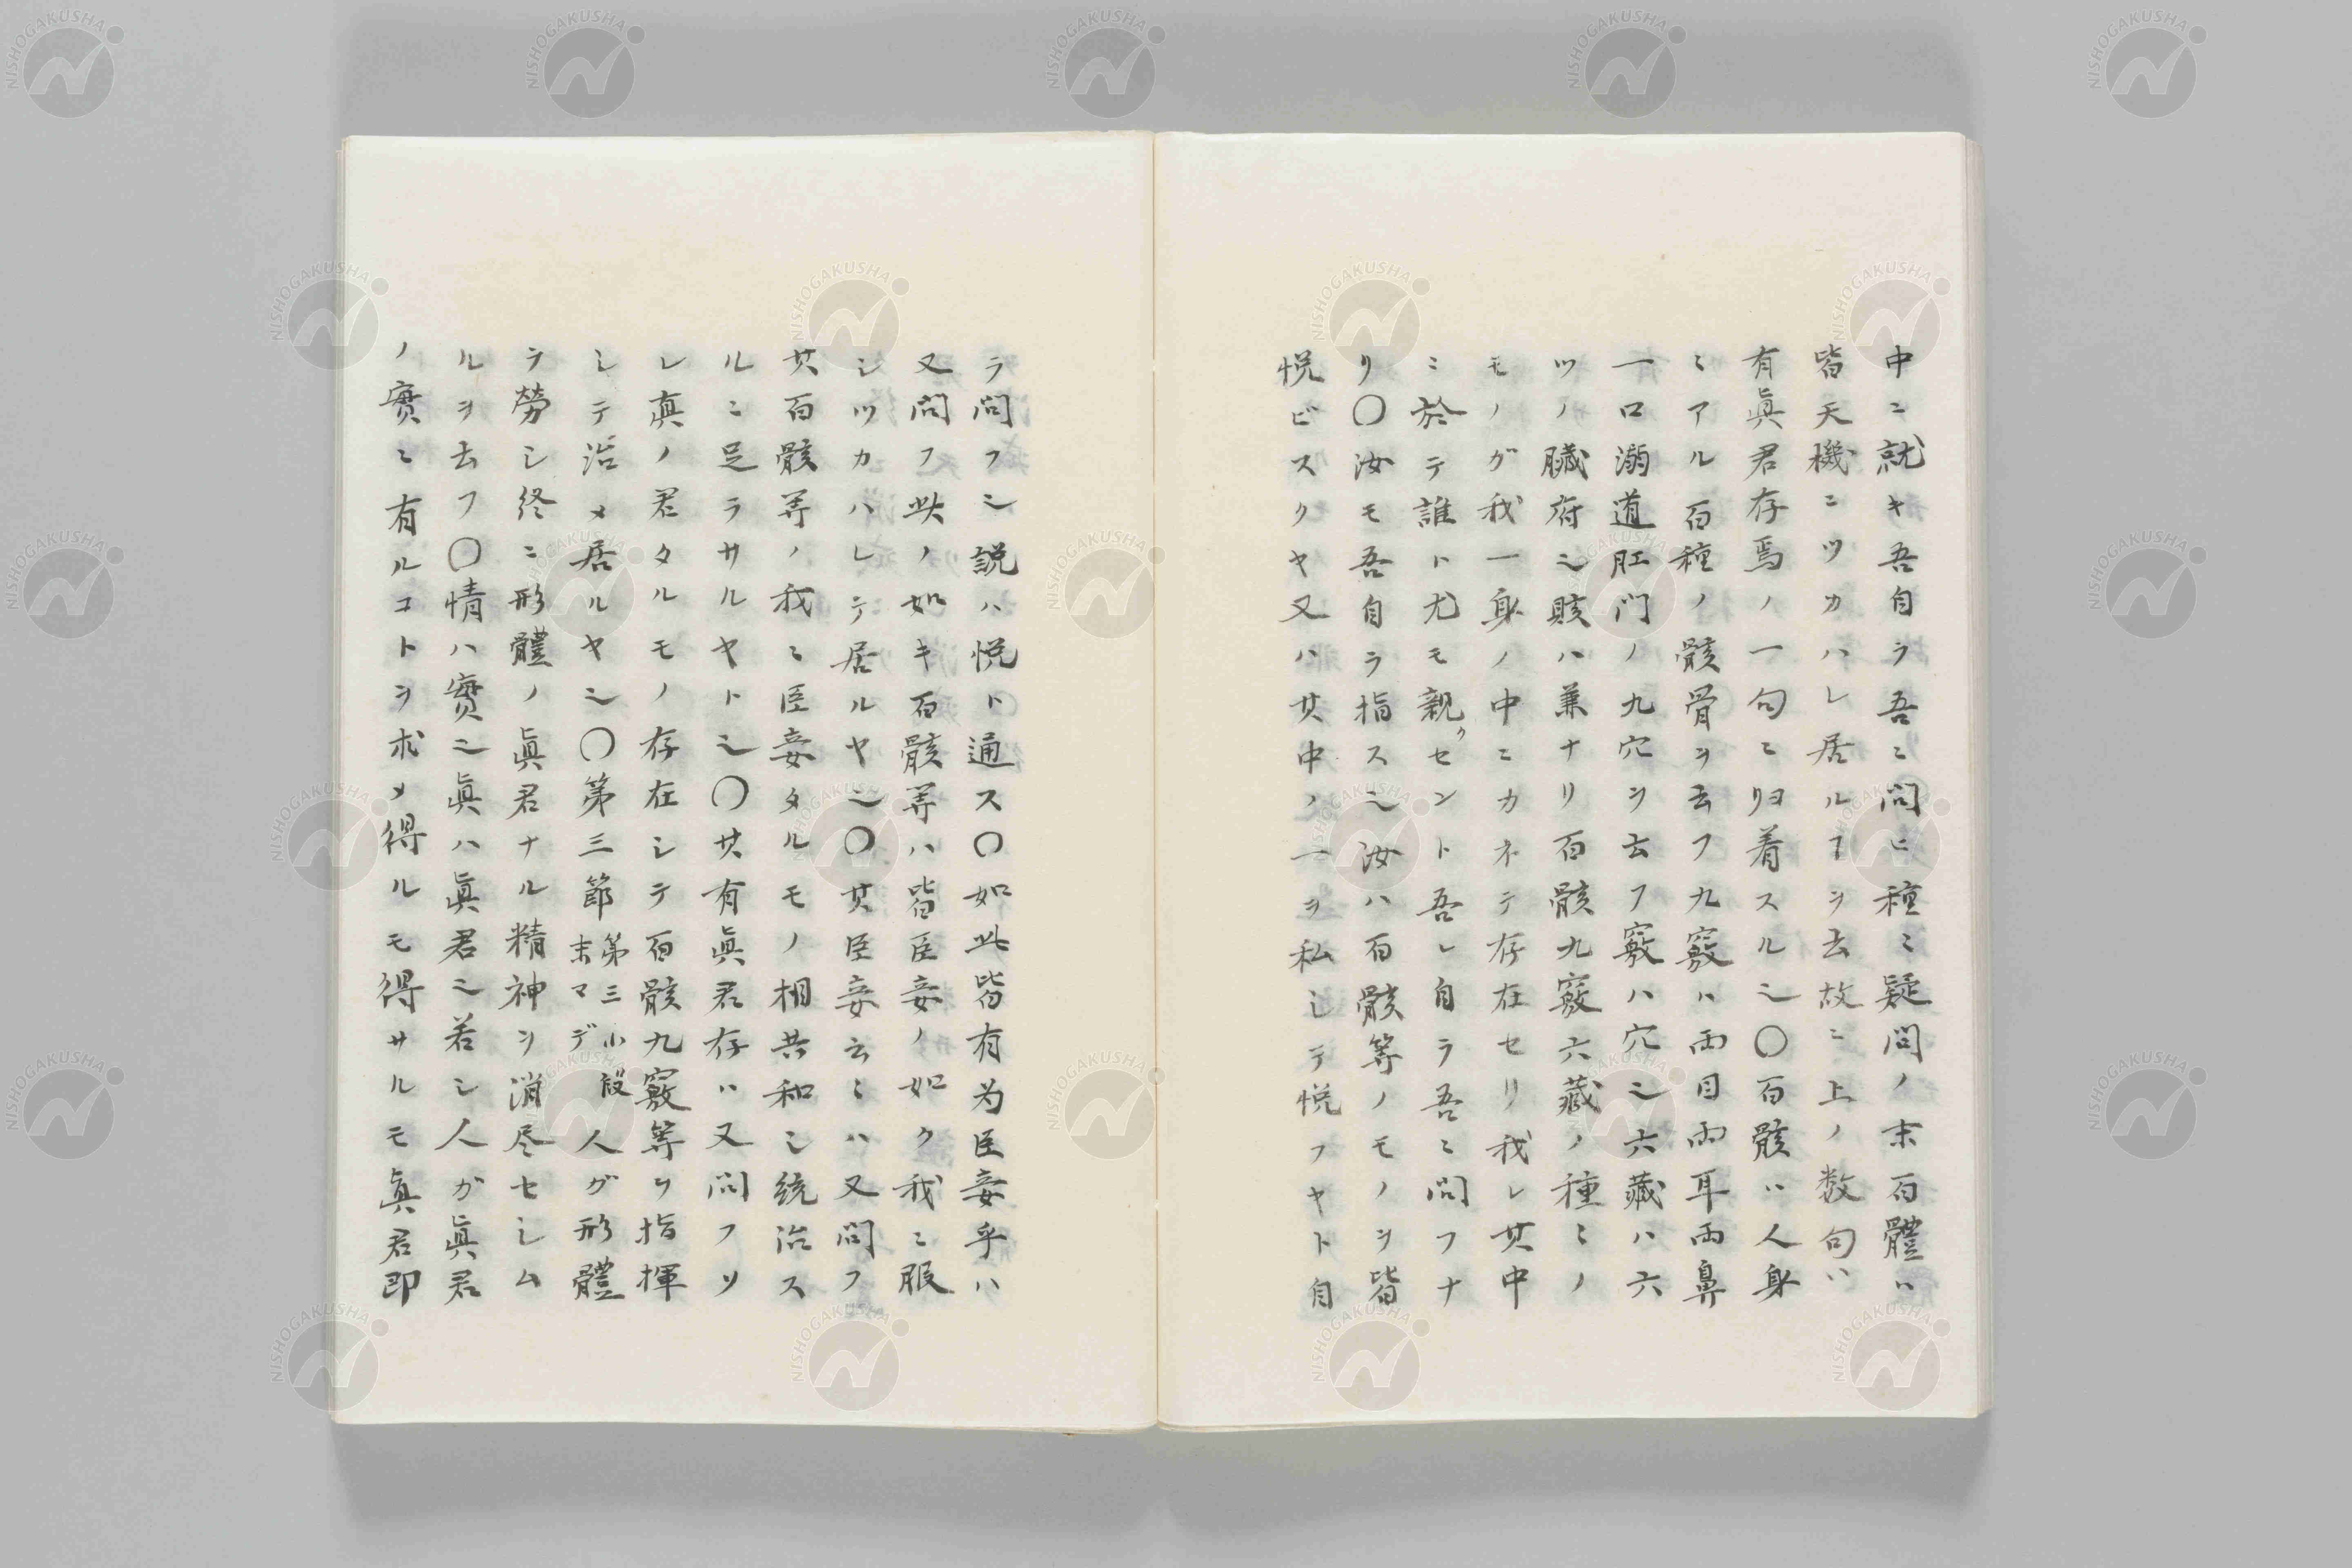 中ニ就キ吾自ラ吾ニ問ヒ種ミ疑問ノ末百體ハ
皆天機ニツカハレ居ルヿヲ云故ニ上ノ数句ハ
有眞君存焉ノ一句ニ归着スル也〇百骸ハ人身
ニアル百種ノ骸骨ヲ云フ九竅ハ両目両耳両鼻
一口溺道肛门ノ九穴ヲ云フ竅ハ穴也六藏ハ六
ツノ臓府也賅ハ兼ナリ百骸九竅六藏ノ種ミノ
モノガ我一身ノ中ニカネテ存在セリ我レ其中
ニ於テ誰ト尤モ親クセント吾レ自ラ吾ニ問フナ
リ〇汝モ吾自ラ指ス也汝ハ百骸等ノモノヲ皆
悦ビスクヤ又ハ其中ノ一ヲ私シテ悦フヤト自
ラ問フ也説ハ悦ト通ス〇如此皆有为臣妾乎ハ
又問フ此ノ如キ百骸等ハ皆臣妾ノ如ク我ニ服
シツカハレテ居ルヤ也〇其臣妾云ミハ又問フ
其百骸等ノ我ニ臣妾タルモノ相共和シ統治ス
ルニ足ラサルヤト也〇其有眞君存ハ又問フソ
レ真ノ君タルモノ存在シテ百骸九竅等ヲ指揮
シテ治メ居ルヤ也〇第三節第三小段末マデ人ガ形體
ラ勞シ終ニ形體ノ眞君ナル精神ヲ消尽セシム
ルヲ云フ〇情ハ實也眞ハ眞君也若シ人ガ眞君
ノ實ニ有ルコトヲ求メ得ルモ得サルモ眞君即
NISHOGAKUSHA